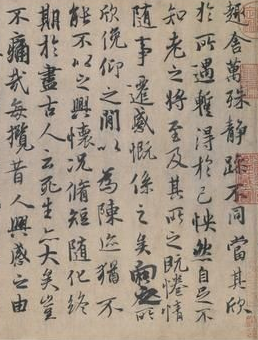 趣舍萬殊靜躁不同當其欣
於所遇暫得於己怏然自足不
知老之將至及其所之既惓情
隨事遷感慨係之矣向之所
欣俛仰之間以為陳迹猶不
能不以之興懷況脩短隨化終
期於盡古人云死生亦大矣豈
不痛哉每攬昔人興感之由